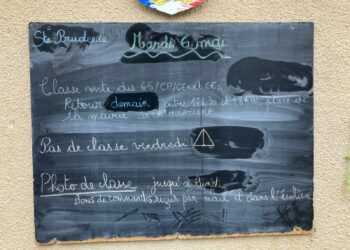 Ste Prudence
Mardi 6 mai
Classe verte des GS/CP/CE1 et CE2
Retour demain entre 17h30 et 18h, place de
la mairie de
Pas de classe vendredi
Photo de classe jusqu'à lundi
Bons de commandes reçus par mail et dans l'écolier